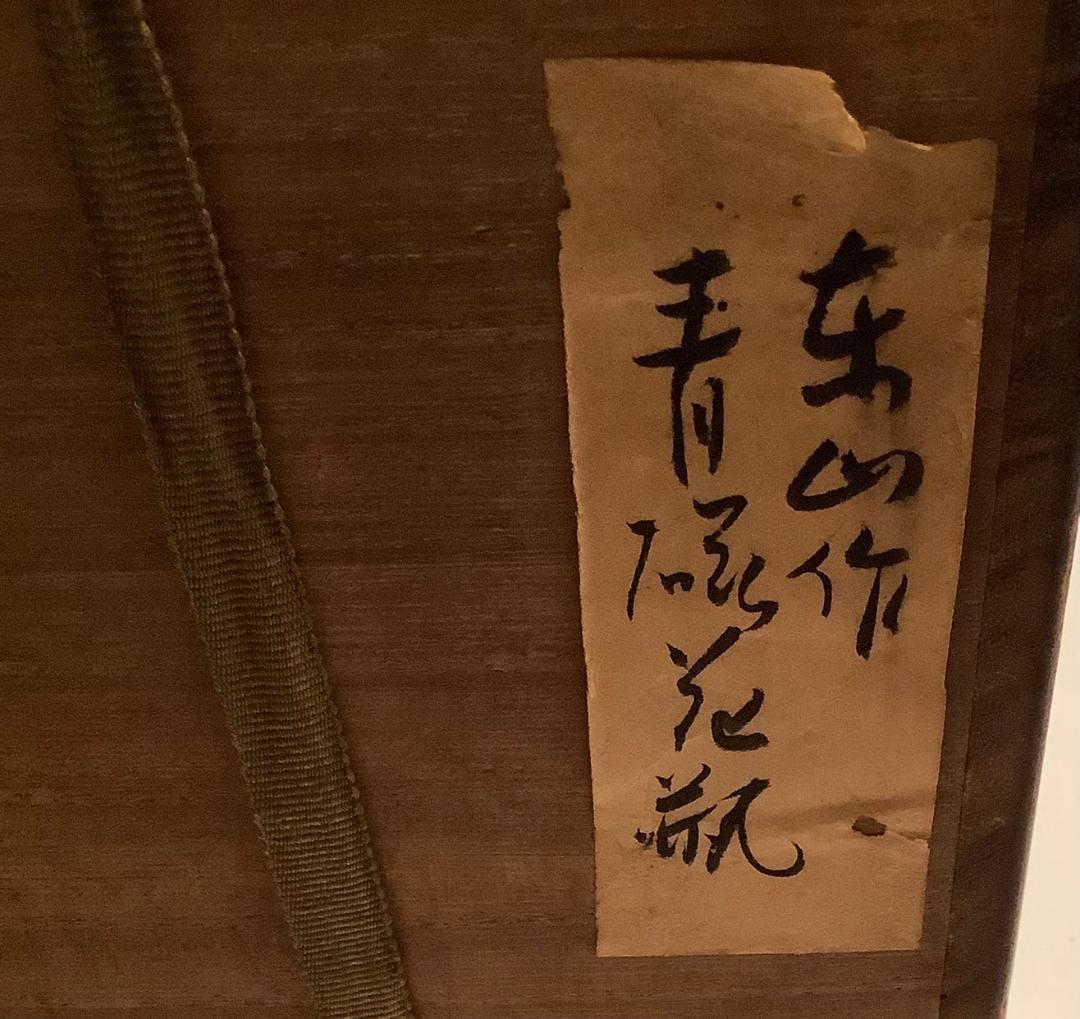 東山作
青磁花瓶